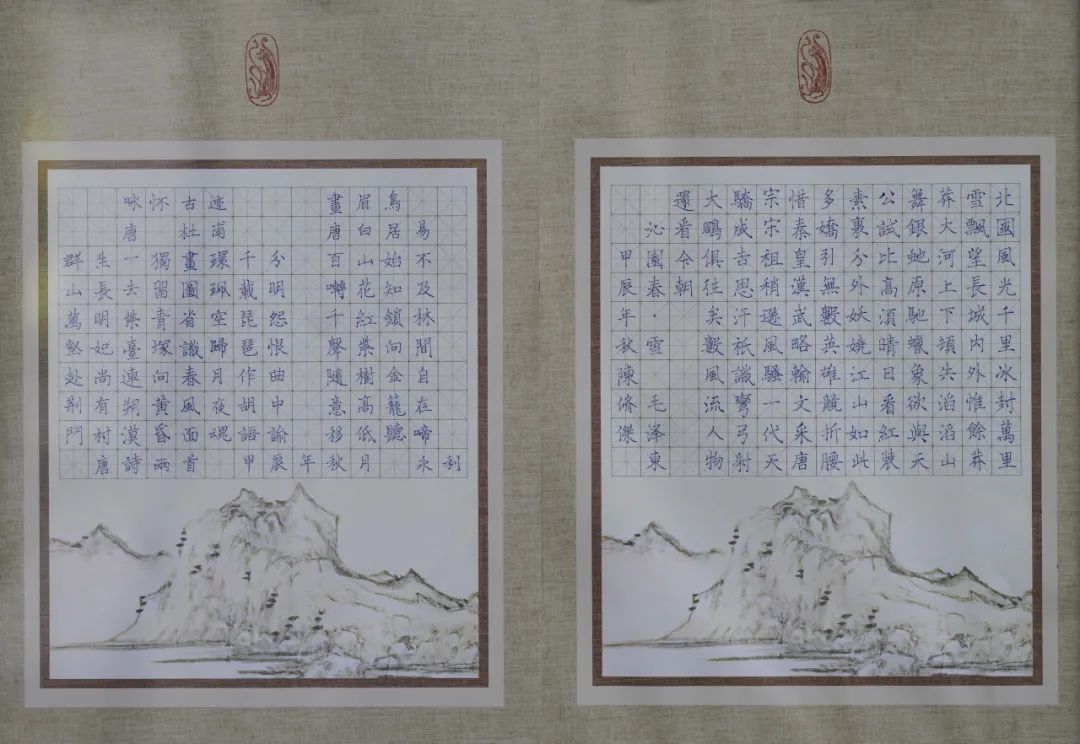 北國風光千里冰封萬里
雪飄望長城內外惟餘莽
莽大河上下頓失滔滔山
舞銀蛇原馳蠟象欲與天
公試比高須晴日看紅裝
素裹分外妖嬈江山如此
多嬌引無數英雄競折腰
惜秦皇漢武略輸文采唐
宗宋祖稍遜風騷一代天
驕成吉思汗祇識彎弓射
大鵰俱往矣數風流人物
還看今朝
沁園春·雪 毛泽東
甲辰年秋陳脩傑
咏怀古迹
唐 杜甫
群山萬壑赴荆門
生長明妃尚有村
一去紫臺連朔漠
獨留青塚向黃昏
畫圖省識春風面
環珮空歸月夜魂
千載琵琶作胡語
分明怨恨曲中論
畫眉鳥
唐白居易
百囀千聲隨意移
山花紅紫樹高低
始知鎖向金籠聽
不及林間自在啼
唐詩兩首 甲辰年秋月 永利